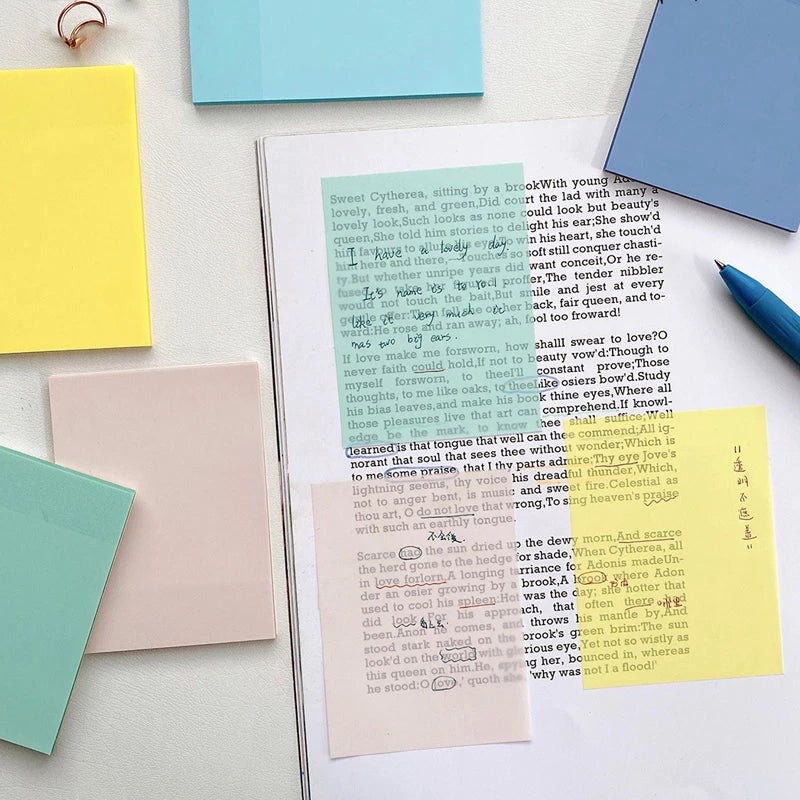 Sweet Cytherea, sitting by a brookWith young
lovely, fresh, and green,Did court the lad with many a
lovely look,Such looks as none could look but beauty's
queen,She told him stories to delight his ear;She show'd
him favours to allure his eye;To win his heart, she touch'd
him here and there, touches so soft still conquer chasti-
I have a lovely day.
ty.But whether unripe years did want conceit,Or he re-
fused to take his figured proffer,The tender nibbler
It's name is to ro!
would not touch the bait,But smile and jest at every
gentle offer:Then fell she on her back, fair queen, and to-
like it very much it
ward:He rose and ran away; ah, fool too froward!
has two big ears.
If love make me forsworn, how shallI swear to love?O
never faith could hold,If not to beauty vow'd:Though to
myself forsworn, to thee I'll constant prove;Those
thoughts, to me like oaks, to theeLike osiers bow'd.Study
his bias leaves,and makes his book thine eyes,Where all
those pleasures live that art can comprehend.If knowl-
edge be the mark, to know thee shall suffice;Well
learned is that tongue that well can thee commend;All ig-
norant that soul that sees thee without wonder;Which is
to me some praise, that I thy parts admire:Thy eye Jove's
lightning seems, thy voice his dreadful thunder,Which,
not to anger bent, is music and sweet fire.Celestial as
thou art, O do not love that wrong,To sing heaven's praise
with such an earthly tongue.
"透明不遮盖"
不会俊
Scarce had the sun dried up the dewy morn,And scarce
the herd gone to the hedge for shade,When Cytherea, all
in love forlorn,A longing tarriance for Adonis madeUn-
der an osier growing by a brook,A brook where Adon
used to cool his spleen:Hot was the day; she hotter that
did look For his approach, that often there had
哪里
been.Anon he comes, and throws his mantle by,And
stood stark naked on the brook's green brim:The sun
look'd on the world with glorious eye,Yet not so wistly as
this queen on him.He, spying her, bounced in, whereas
he stood:O Jove,' quoth she, 'why was not I a flood!'